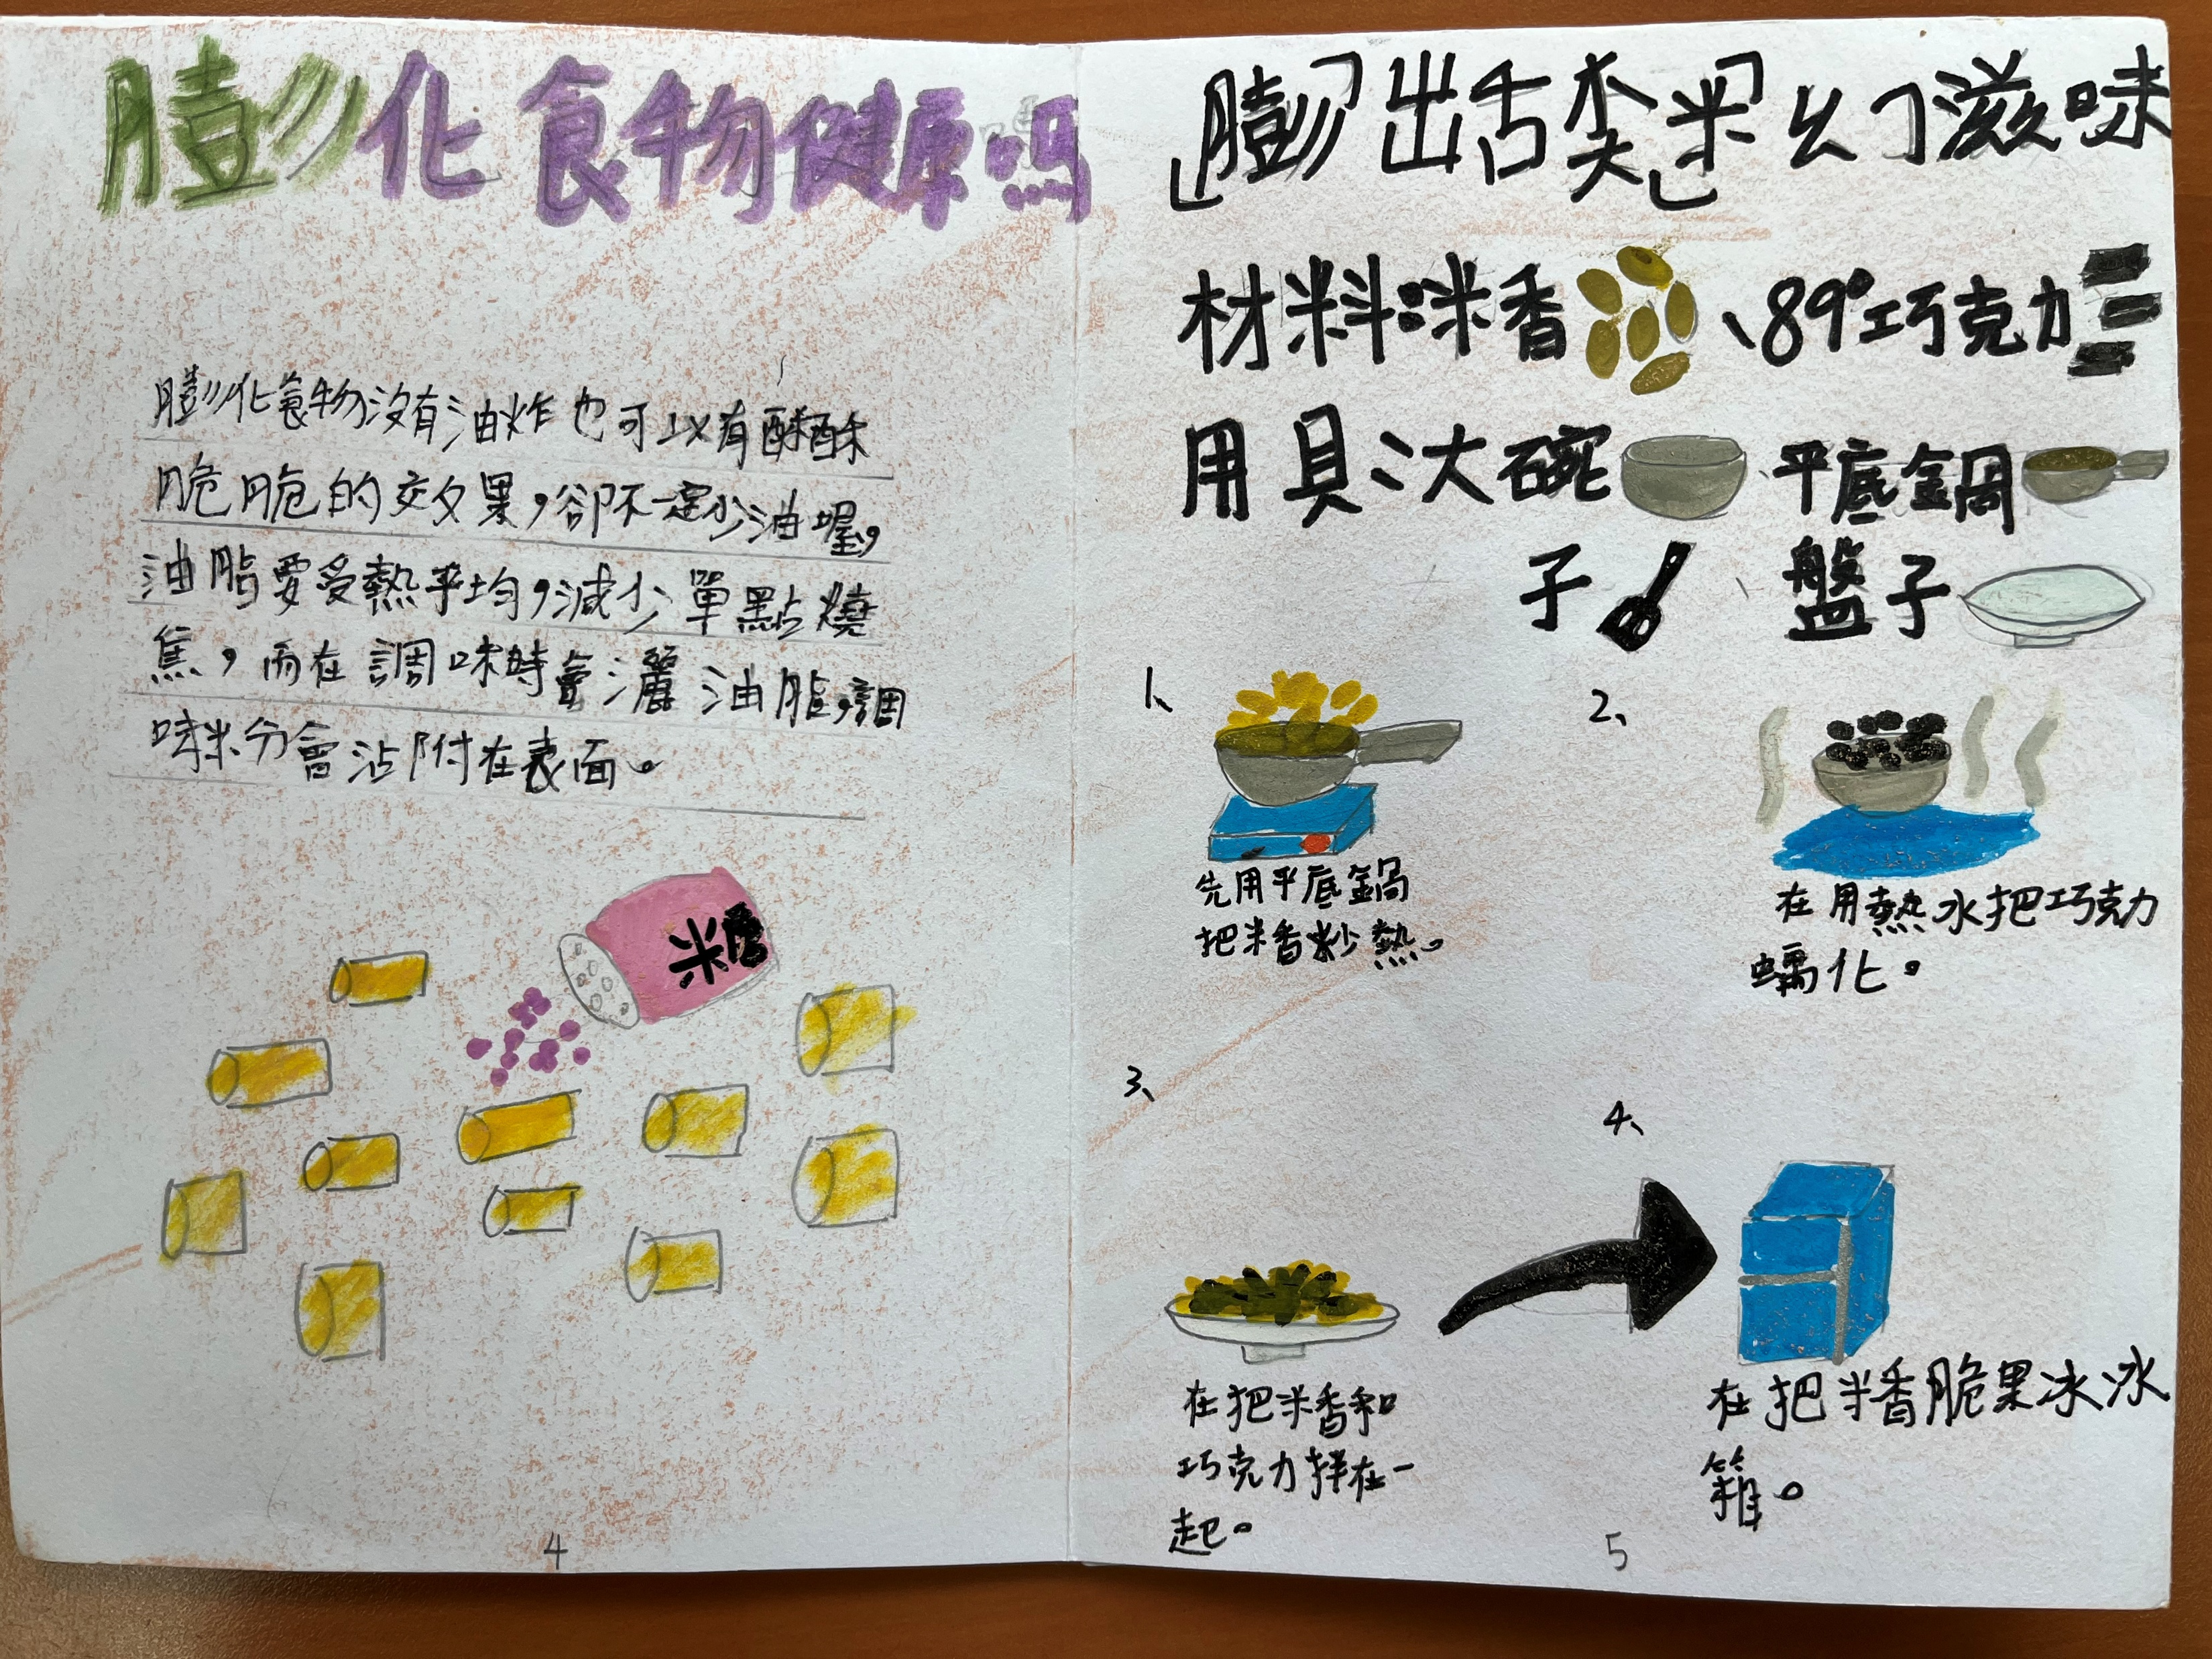 膨化食物健康嗎
膨化食物沒有油炸也可以有酥酥
脆脆的效果,卻不一定少油喔,
油脂要受熱平均,減少單點燒
焦,而在調味時會灑油脂,調
味粉會沾附在表面。
4
「膨」出舌尖「米」ㄠㄋ滋味
材料:米香、89°巧克力
用具:大碗 平底鍋
子 盤子
1、
先用平底鍋
把米香炒熱。
2、
在用熱水把巧克力
化。
3、
在把米香和
巧克力拌在一
起。
4、
在把米香脆果冰冰
箱。
5